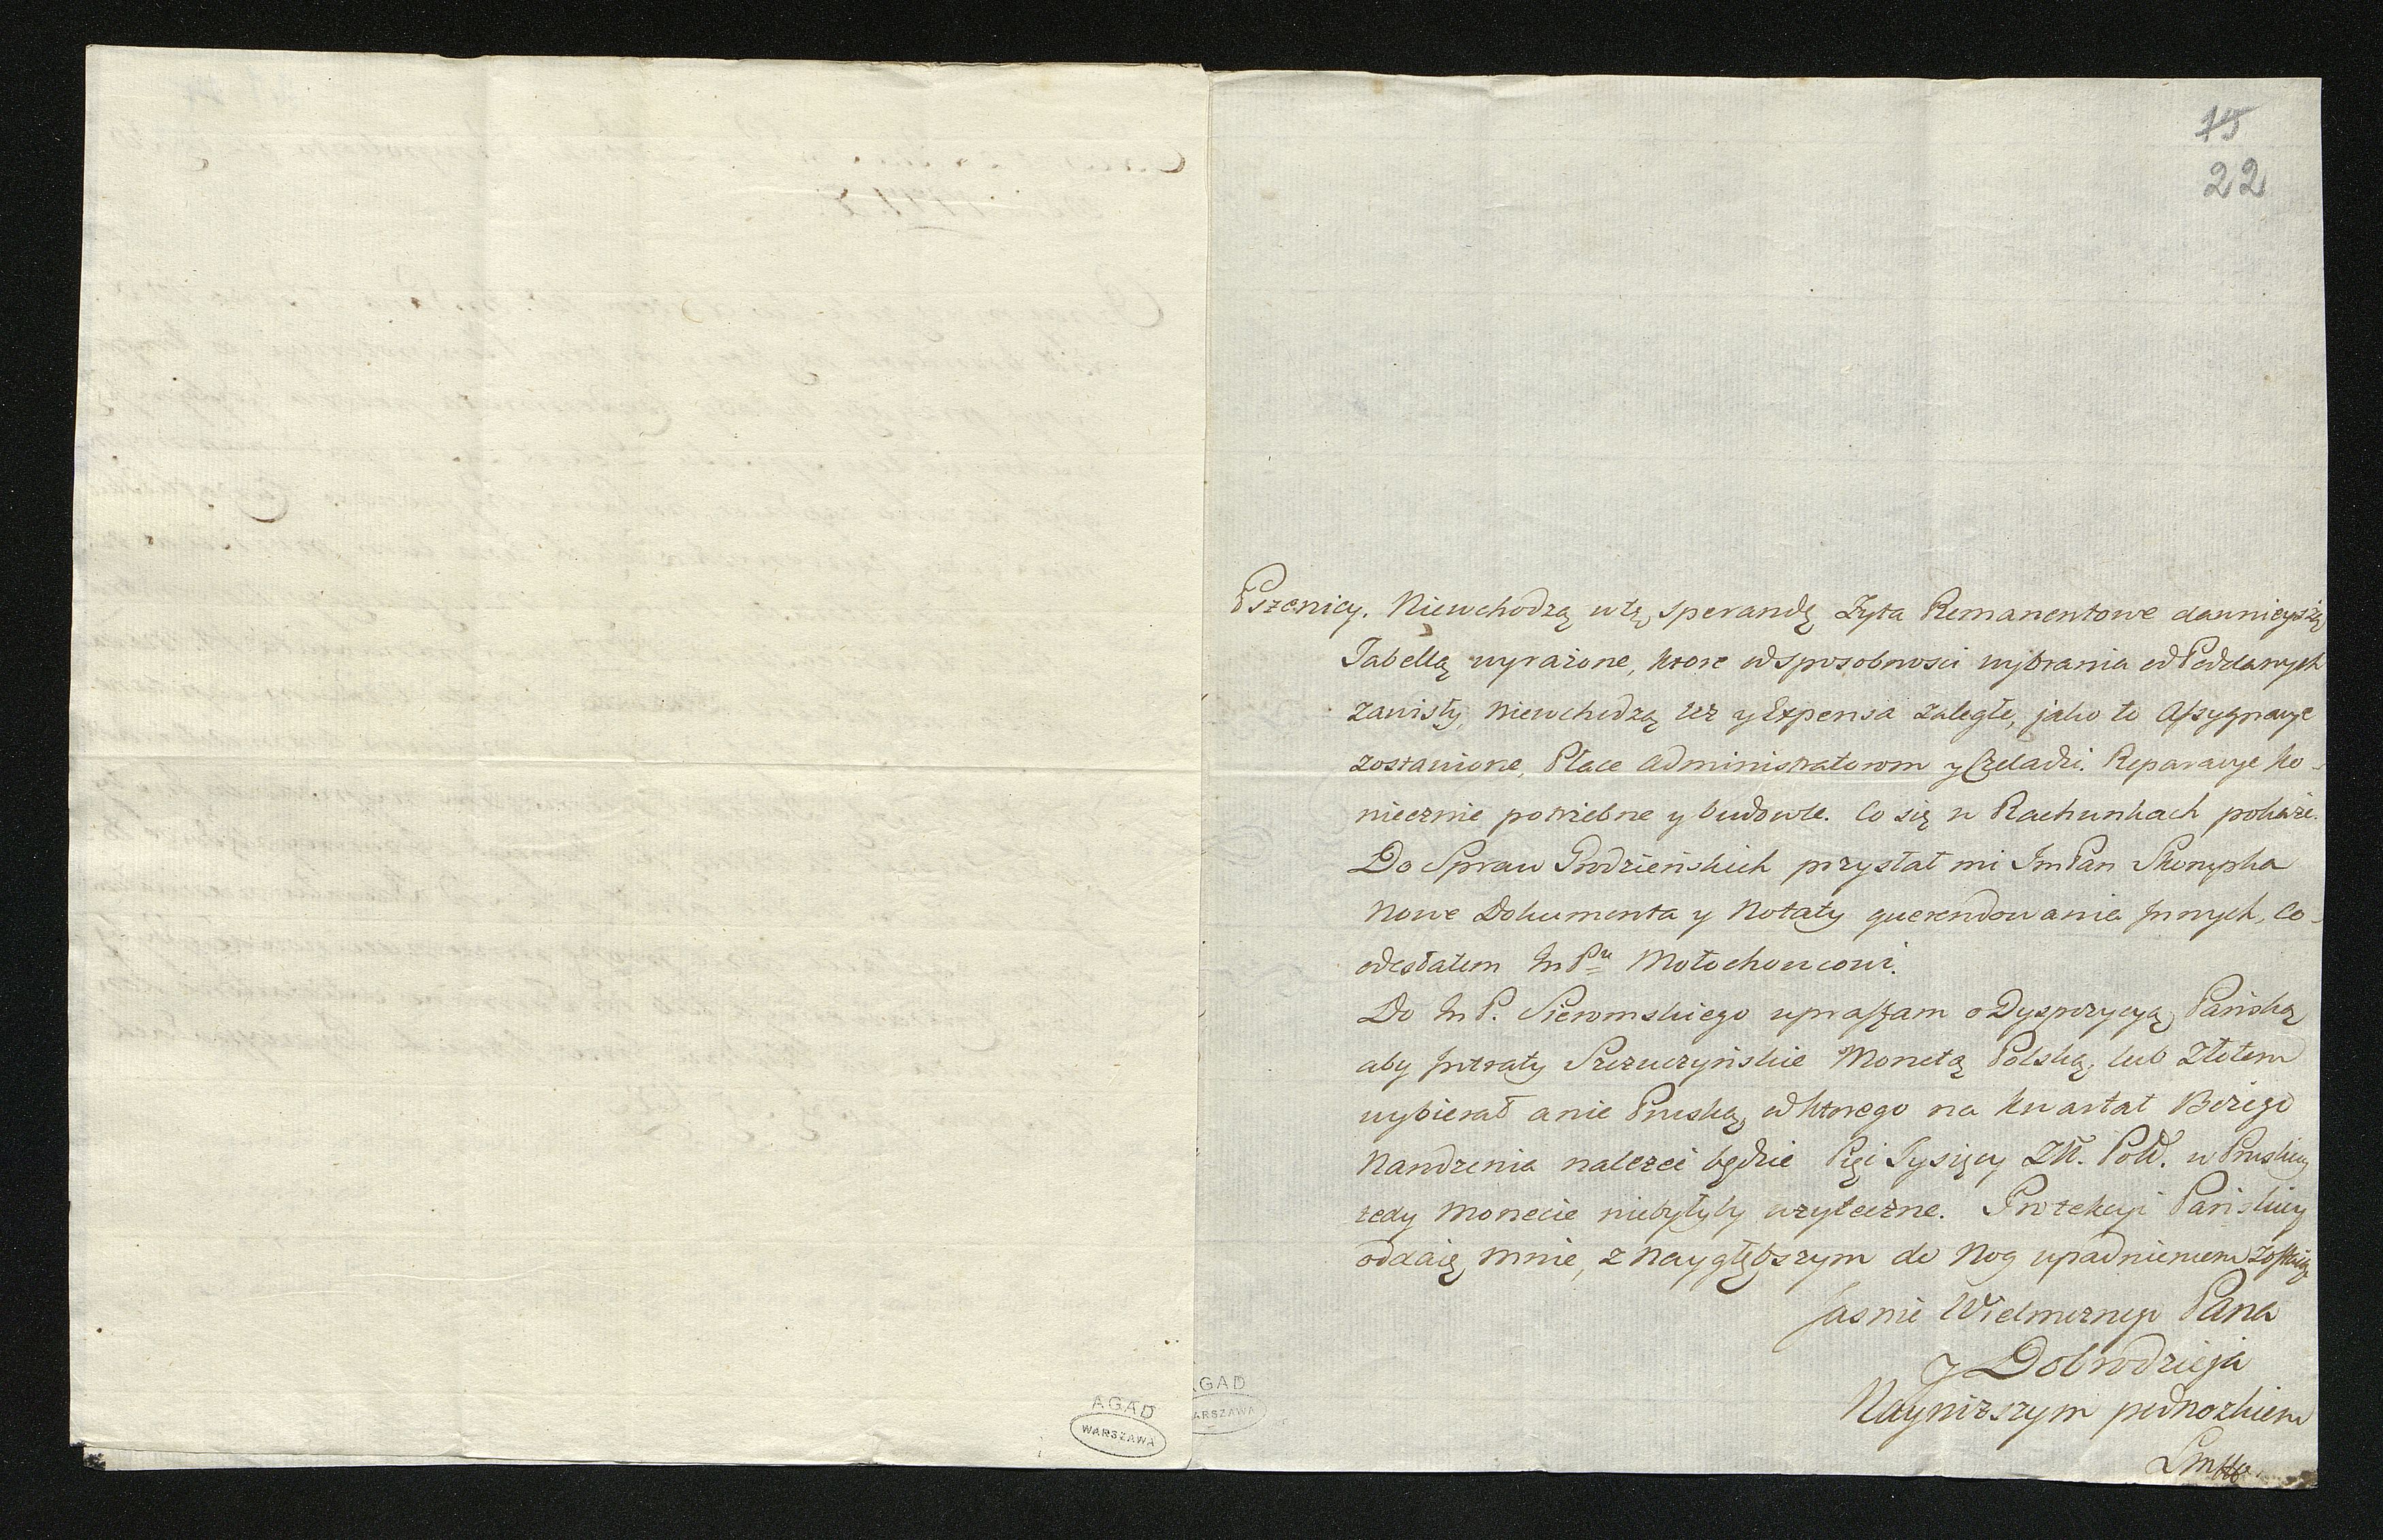 15
22
Pszenicy. Niewchodzą wtę sperandę Żyta Remanentowe dawnieyszą
Tabellą wyrażone, ktore od sposobnosci wybrania od Poddanych
zawisły, niewchodzą też y Expensa zaległe, jako to Assygnacye
zostawione, Płace Administratorom y Czeladzi. Reparacye ko-
niecznie potrzebne y budowle. Co się w Rachunkach pokaże.
Do Spraw Grodzieńskich przysłał mi ImPan Skorupka
nowe Dokumenta y Notaty querendowania Jnnych, co
odesłałem Im Pu Mołochowcowi.
Do Im P. upraszam o Dyspozycyą Pańską
aby Jntraty Szczuczyńskie Monetą Polską, lub Złotem
wybierał a nie Pruską, od ktorego na kwartał Bożego
Narodzenia należeć będzie Pięć Tysięcy Zł. Pol. w Pruskiey
tedy Monecie niebyłyby użyteczne. Protekcyi Pańskiey
oddaię mnie, z naygłębszym do nog upadnieniem zostaię
Jasnie Wielmożnego Pana
y Dobrodzieja
Nayniższym podnożkiem
AGAD
WARSZAWA
AGAD
WARSZAWA